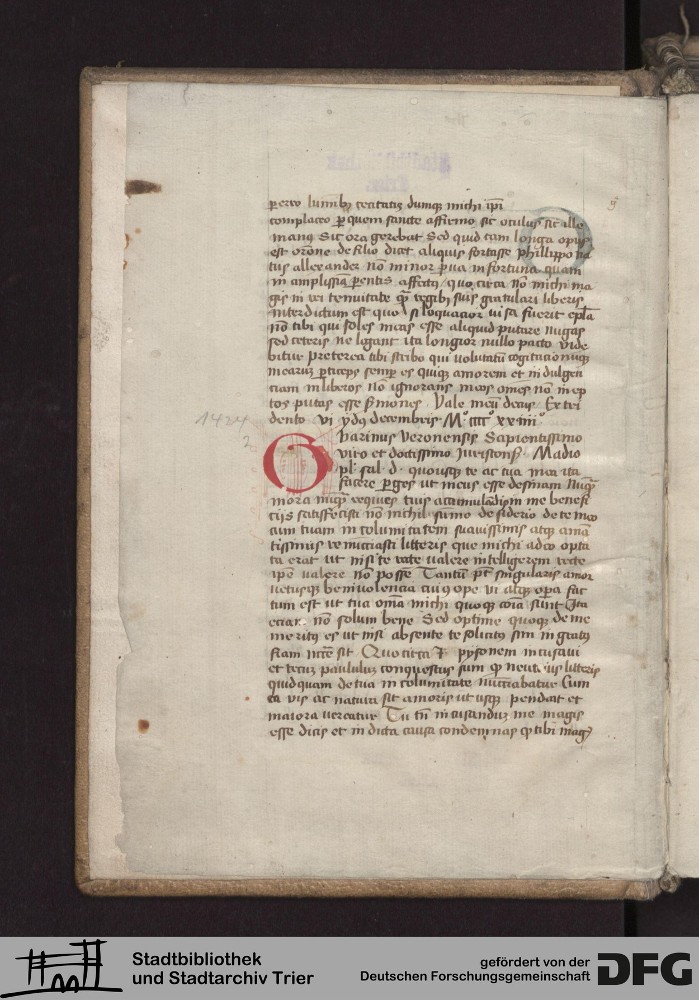 porro luminibus captatis dumque michi ipsi
complaceo per quem sancte affirmo sic oculus sic alle
manus Sic ora gerebat Sed quid tam longa opus
est oratione de filio dicet aliquis fortasse phillippo na
tus allexander non minor
in amplissima parentis affectus quo circa non michi ma
gis in rei tenuitate quam regibus suis gratulari liberis
interdictum est quo si loquacior visa fuerit epla
nō tibi qui soles meas esse aliquid putare nugas
sed ceteris ne legant ita longior nullo pacto vide
bitur preterea tibi scribo qui voluntatum cogitacionumque
mearum particeps semper es quique amorem et indulgen
ciam in liberos nō ignorans meos omēs nō inep
tos putas esse sermones Vale meum decus Ex tri
dento vi ydus decembris M° cccc° xxiiii°
1424
2
Gvarinus Veronensis Sapientissimo
viro et doctissimo Jurisconsulto Madio
pl. sal. d. quousque te ac tua mea ita
facere perges ut meus esse desinam
mora requies tuis accumulandis in me benefi
ciis satisfecisti nō nichil summo desiderio de te meo
cum tuam in columitatem suavissimis atque aman
tissimis renunciasti litteris que michi adeo opta
ta erat ut nisi te recte valere intelligerem recte
ipse valere nō posse Tantum potest singularis amor
vetusque benivolencia cuius ope vi atque opera fac
tum est ut tua omnia michi quoque comunia sunt Ita
eciam nō solum bene Sed optime quoque de me
meritus es ut nisi absente te solicitus sim ingratus
fiam necesse sit Quo circa pysonem incusavi
et tecum paululum conquestus sum quod neutrius litteris
quidquam de tua in columitate nunciabatur Cum
ea vis ac natura sit amoris ut usque pendeat et
maiora vereatur Tu tamen incusandum me magis
esse dicis et indicta causa condemnas quod tibi magis
Stadtbibliothek
und Stadtarchiv Trier
gefördert von der
Deutschen Forschungsgemeinschaft
DFG